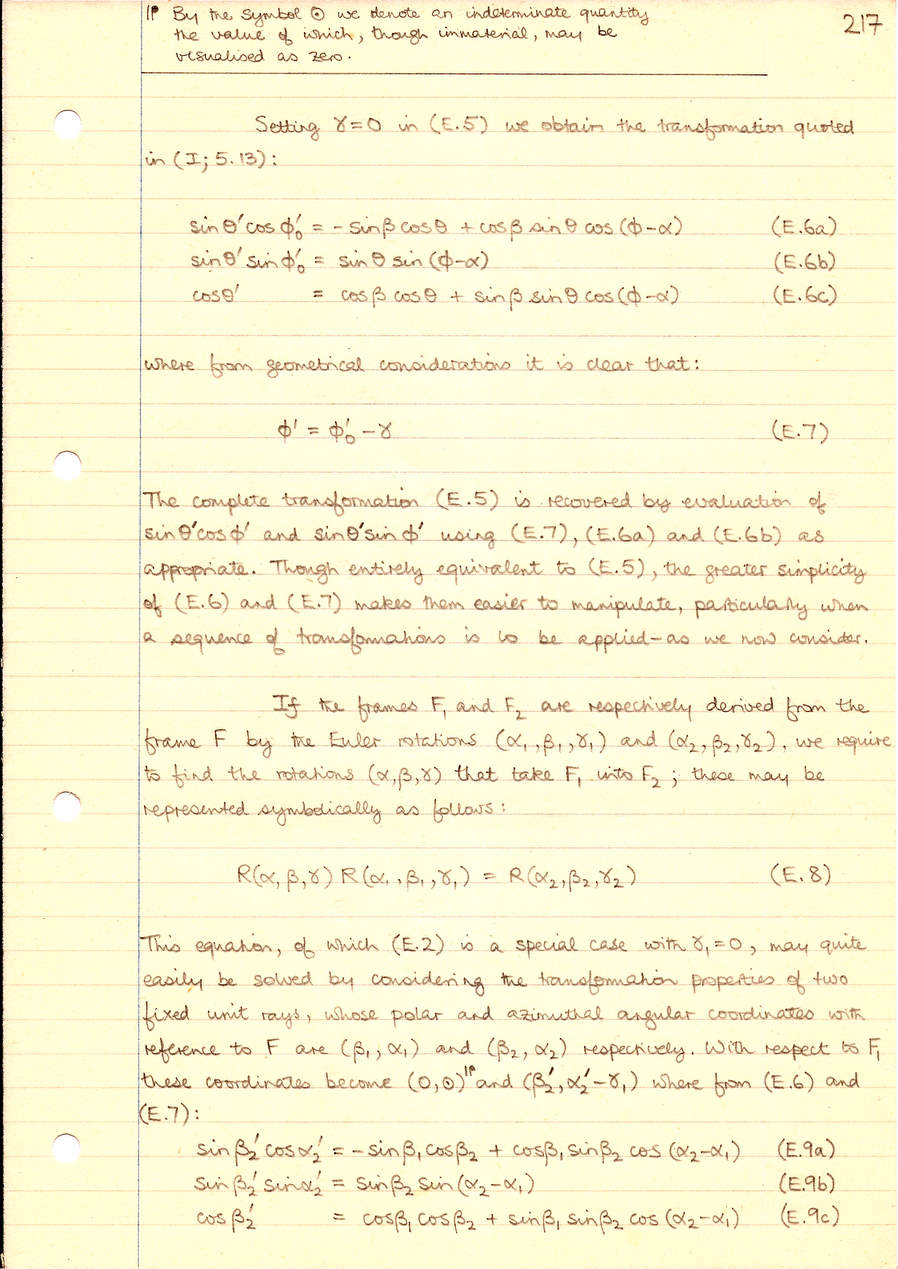 IP By the symbol ⊙ we denote an indeterminate quantity
the value of which, though immaterial, may be
visualised as zero.
217
Setting γ=0 in (E.5) we obtain the transformation quoted
in (I; 5.13):
sinθ′cosϕ₀′ = - sinβ cosθ + cosβ sinθ cos (ϕ-α) (E.6a)
sinθ′ sinϕ₀′ = sinθ sin (ϕ-α) (E.6b)
cosθ′ = cosβ cosθ + sinβ sinθ cos (ϕ-α) (E.6c)
where from geometrical considerations it is clear that:
ϕ′ = ϕ₀′ - γ (E.7)
The complete transformation (E.5) is recovered by evaluation of
sinθ′cosϕ′ and sinθ′sinϕ′ using (E.7), (E.6a) and (E.6b) as
appropriate. Though entirely equivalent to (E.5), the greater simplicity
of (E.6) and (E.7) makes them easier to manipulate, particularly when
a sequence of transformations is to be applied - as we now consider.
If the frames F₁ and F₂ are respectively derived from the
frame F by the Euler rotations (α₁,β₁,γ₁) and (α₂,β₂,γ₂), we require
to find the rotations (α,β,γ) that take F₁ into F₂; these may be
represented symbolically as follows:
R(α,β,γ) R(α₁,β₁,γ₁) = R(α₂,β₂,γ₂) (E.8)
This equation, of which (E.2) is a special case with γ₁=0, may quite
easily be solved by considering the transformation properties of two
fixed unit rays, whose polar and azimuthal angular coordinates with
reference to F are (β₁,α₁) and (β₂,α₂) respectively. With respect to F₁
these coordinates become (0,⊙)ᴵᴾ and (β₂′,α₂′-γ₁) where from (E.6) and
(E.7):
sinβ₂′ cosα₂′ = - sinβ₁ cosβ₂ + cosβ₁ sinβ₂ cos (α₂-α₁) (E.9a)
sinβ₂′ sinα₂′ = sinβ₂ sin (α₂-α₁) (E.9b)
cosβ₂′ = cosβ₁ cosβ₂ + sinβ₁ sinβ₂ cos (α₂-α₁) (E.9c)